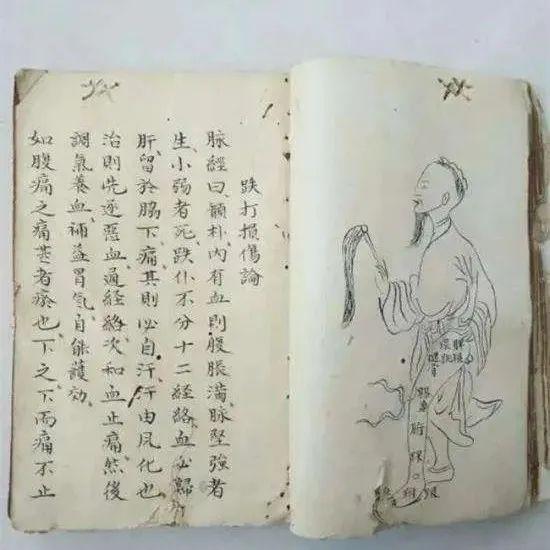 跌打損傷論
脉經曰、顛朴內有血則腹脹滿、脉堅強者
生小弱者死、跌仆不分十二經絡血必歸
肝、留於脇下、痛其則必自汗、汗由風化也
治則先逐惡血、通経絡、次和血止痛、然後
調氣養血、補益胃氣、自能護効、
如腹痛之痛甚者瘀也、下之下而痛不止